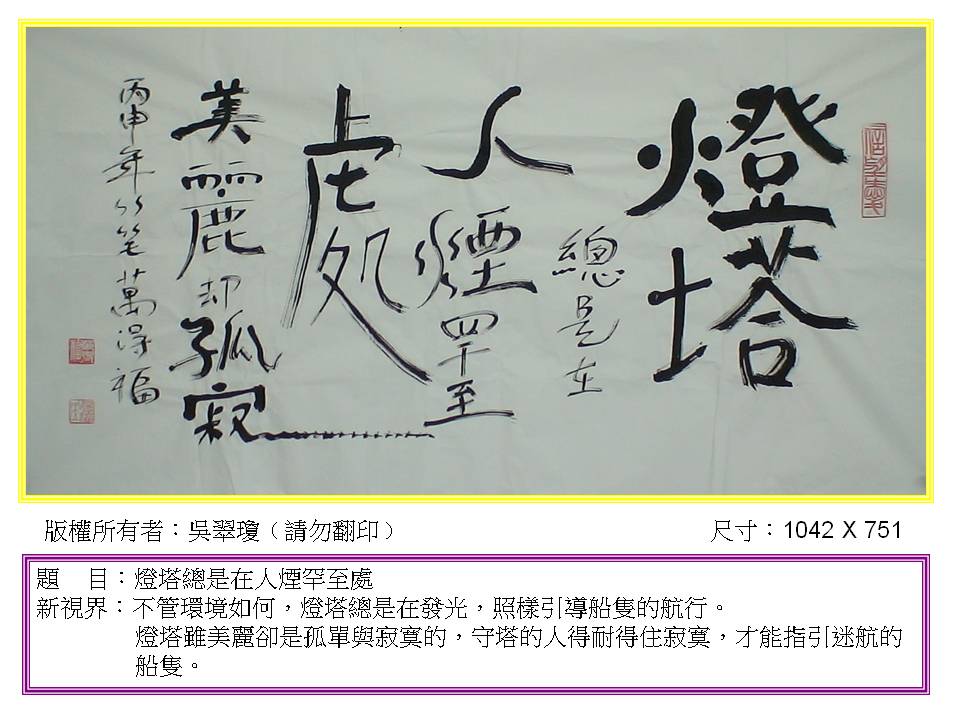 燈塔
總是在
人煙罕至
處
美麗却孤寂
丙申年萬得福
版權所有者：吳翠瓊（請勿翻印）
尺寸：1042 X 751
題　目：燈塔總是在人煙罕至處
新視界：不管環境如何，燈塔總是在發光，照樣引導船隻的航行。
燈塔雖美麗卻是孤單與寂寞的，守塔的人得耐得住寂寞，才能指引迷航的
船隻。